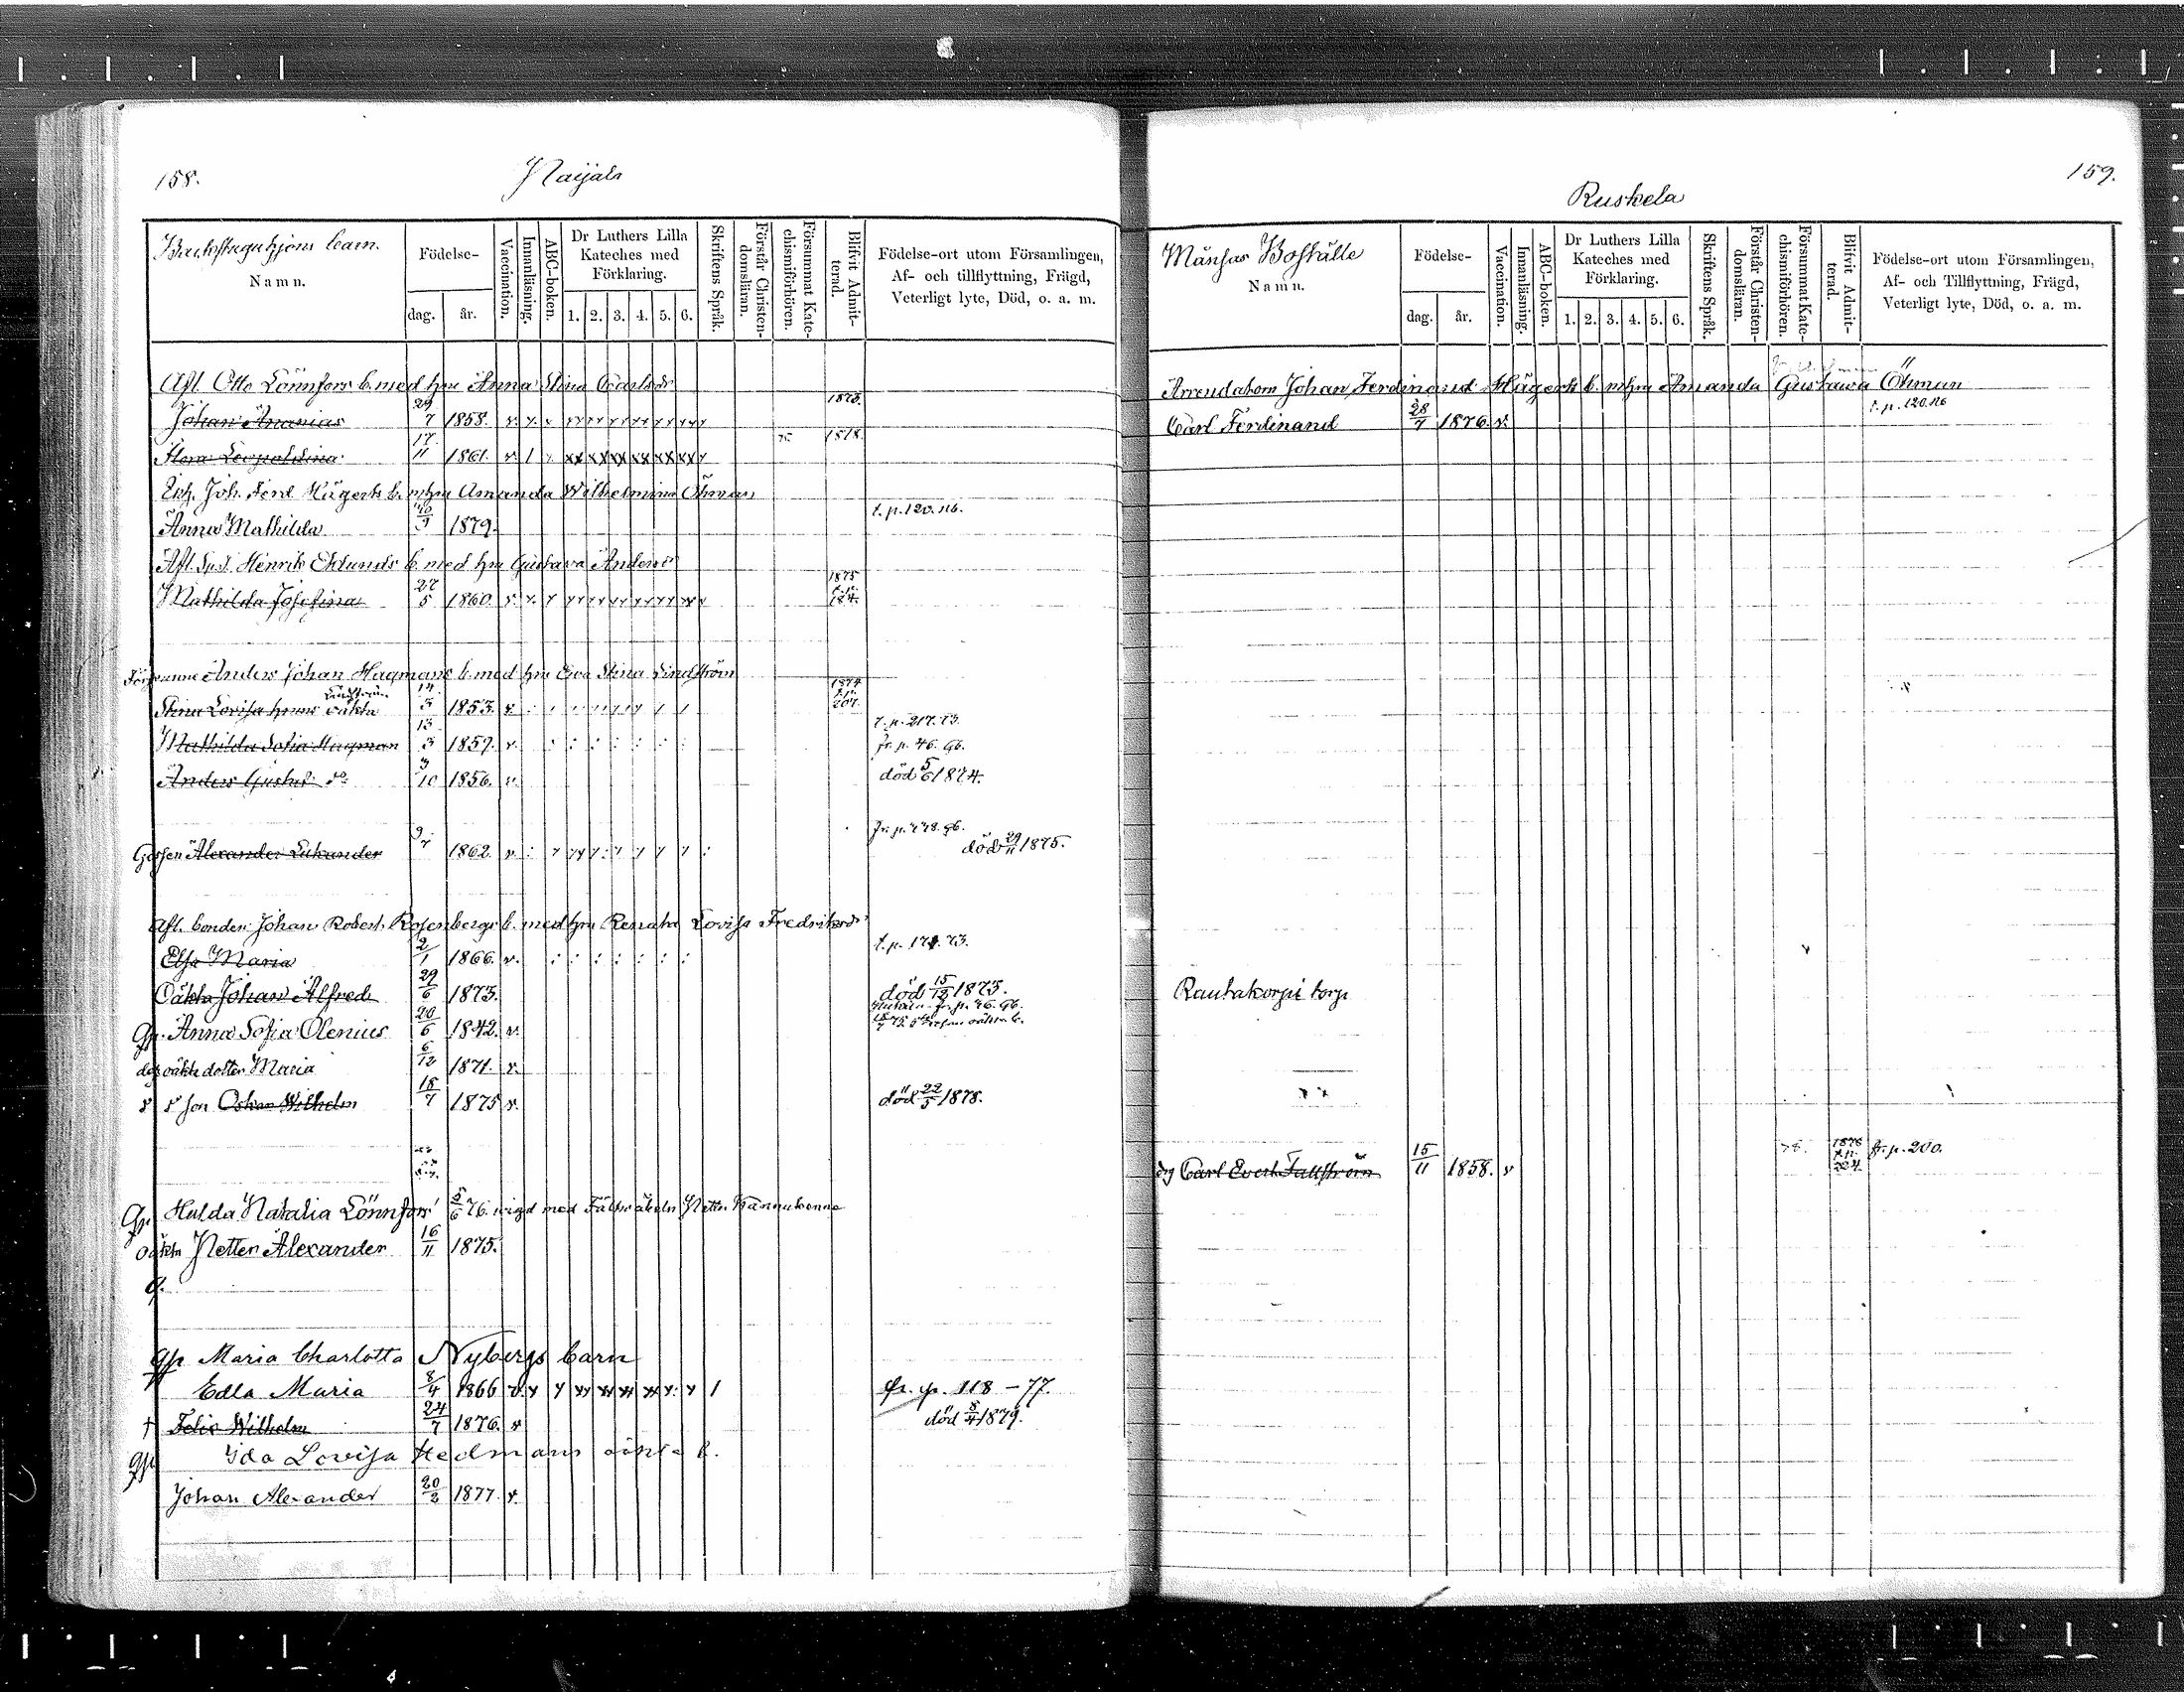 158.
Naijala
Backstuguhjons barn.
Namn.
Födelse-
dag.
år.
Vaccination.
Innanläsning.
ABC-boken.
Dr Luthers Lilla
Kateches med
Förklaring.
1. 2. 3. 4. 5. 6.
Skriftens Språk.
Förstår Christen-
domsläran.
Försummat Kate-
chismiförhören.
Blifvit Admit-
terad.
Födelse-ort utom Församlingen,
Af- och tillflyttning, Frägd,
Veterligt lyte, Död, o. a. m.
Afl. Otto Lönnfors b. med hu Anna Stina Carlsdr
Johan Ananias 29/7 1858. 1875.
Flora Leopoldina 17/11 1861. 1878.
Joh. Ferd. Hägerts b. m hu Amanda Wilhelmina Öhman
Anna Mathilda 1879. t. p. 120. n6.
Afl. Henrik Eklunds b. med hu Gustava Andersdr
Mathilda Josefina 27/5 1860. 1875 t. p. 124.
Anders Johan Hagmans b. med hu Eva Stina Lindström
Stina Lovisa hennes oäkta Lindström 14/3 1853. 1874 t. p. 207.
Mathilda Sofia Hagman 13/3 1859. t. p. 217. 73. fr. p. 46. 96.
Anders Gustaf do 3/10 1856. död 5/6 1874.
Gossen Alexander 9/7 1862. fr. p. 96. död 29/11 1875.
Afl. bonden Johan Robert Rosenbergs b. med hu Renata Lovisa Fredriksdr
Elsa Maria 2/1 1866. t. p. 73.
Oäkta Johan Alfred 29/6 1873. död 15/12 1873.
Qp. Anna Sofia Olenius 20/6 1842. fr. p. 46. 96.
des oäkta dotter Maria 6/12 1871.
d d son Oskar Wilhelm 18/7 1875 död 22/5 1878.
Qp Hulda Natalia Lönnfors 5/6 76. vigd med Netter
oäkta Netter Alexander 16/11 1875.
qp Maria Charlotta Nybergs barn
Edla Maria 8/4 1866 fr. p. 118 - 77.
† Felix Wilhelm 24/7 1876. död 8/4 1879.
qp Ida Lovisa Hedmans oäkta b.
Johan Alexander 20/2 1877.
159.
Ruskela
Månsas Boställe
Namn.
Födelse-
dag.
år.
Vaccination.
Innanläsning.
ABC-boken.
Dr Luthers Lilla
Kateches med
Förklaring.
1. 2. 3. 4. 5. 6.
Skriftens Språk.
Förstår Christen-
domsläran.
Försummat Kate-
chismiförhören.
Blifvit Admit-
terad.
Födelse-ort utom Församlingen,
Af- och Tillflyttning, Frägd,
Veterligt lyte, Död, o. a. m.
Arrendatorn Johan Ferdinand Hägerts b. m hu Amanda Gustawa Öhman
Carl Ferdinand 28/7 1876. t. p. 120. n6
Rautakorpi torp
dg Carl Evert Fallström 15/11 1858. 1876 t. p. 224. fr. p. 200.